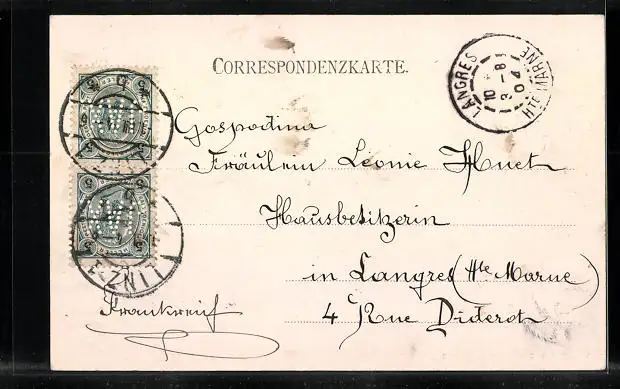 CORRESPONDENZKARTE.
LANGRES
10 3 -8 04
HTE MARNE
Gospodina
Fräulein Léonie Huet
Hausbesitzerin
in Langres (Hte Marne)
4 Rue Diderot
Frankreich
LINZ
5 5
5 5